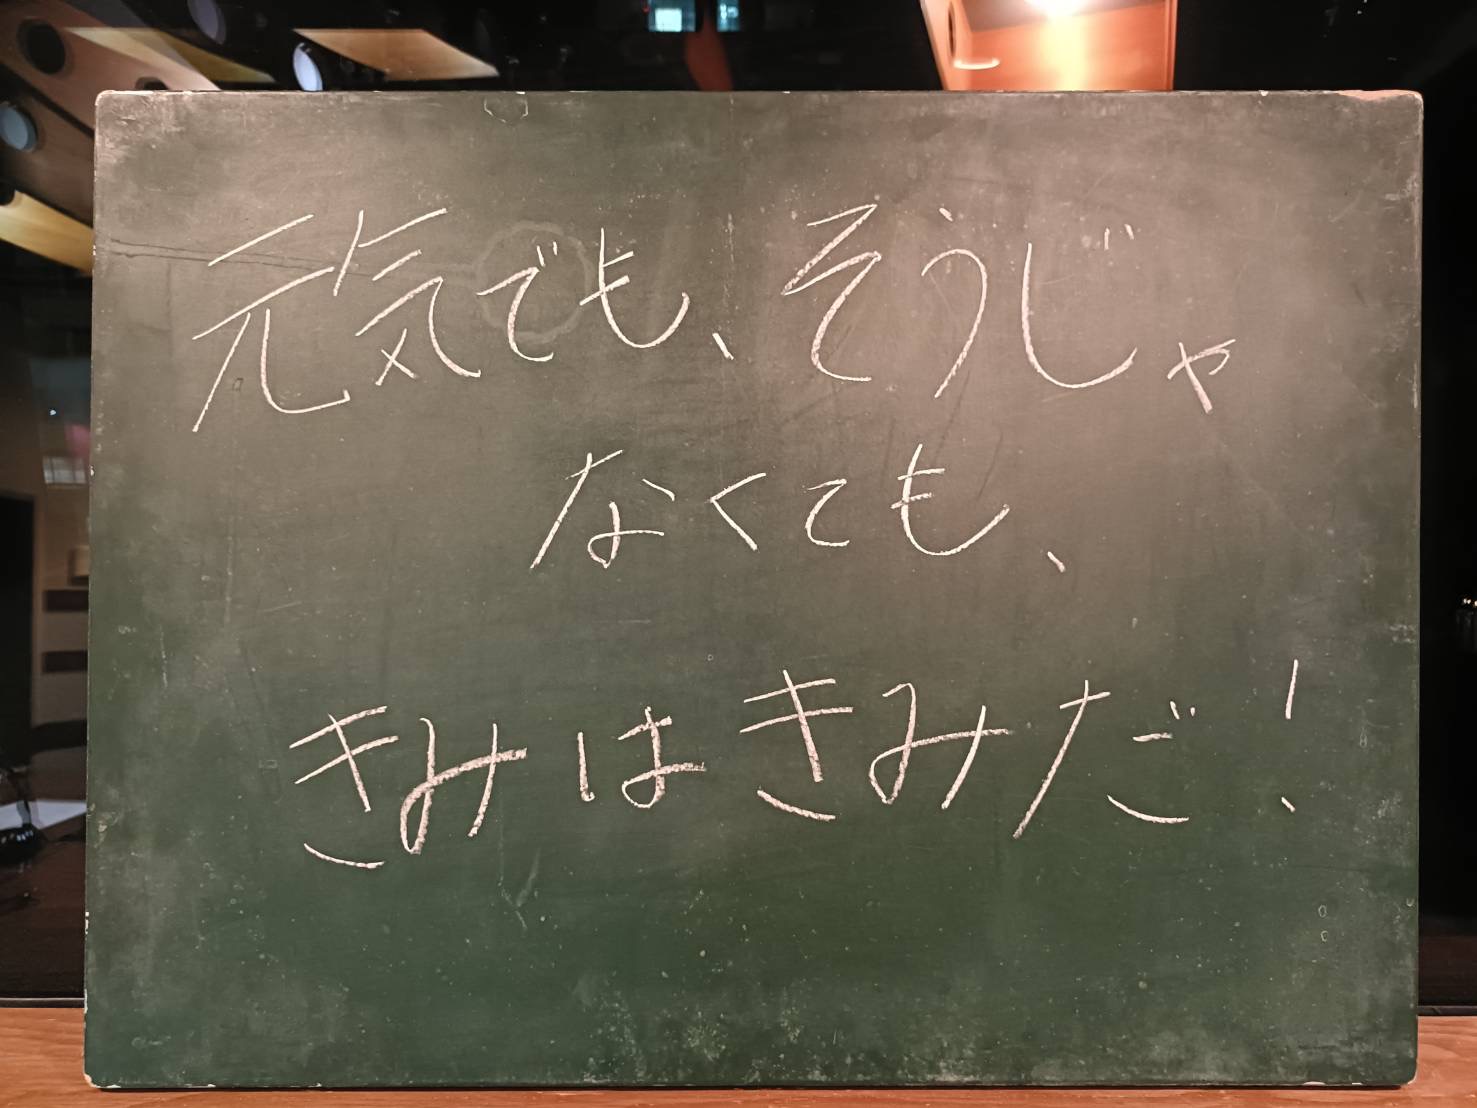 元気でも、そうじゃ
なくても、
きみはきみだ!